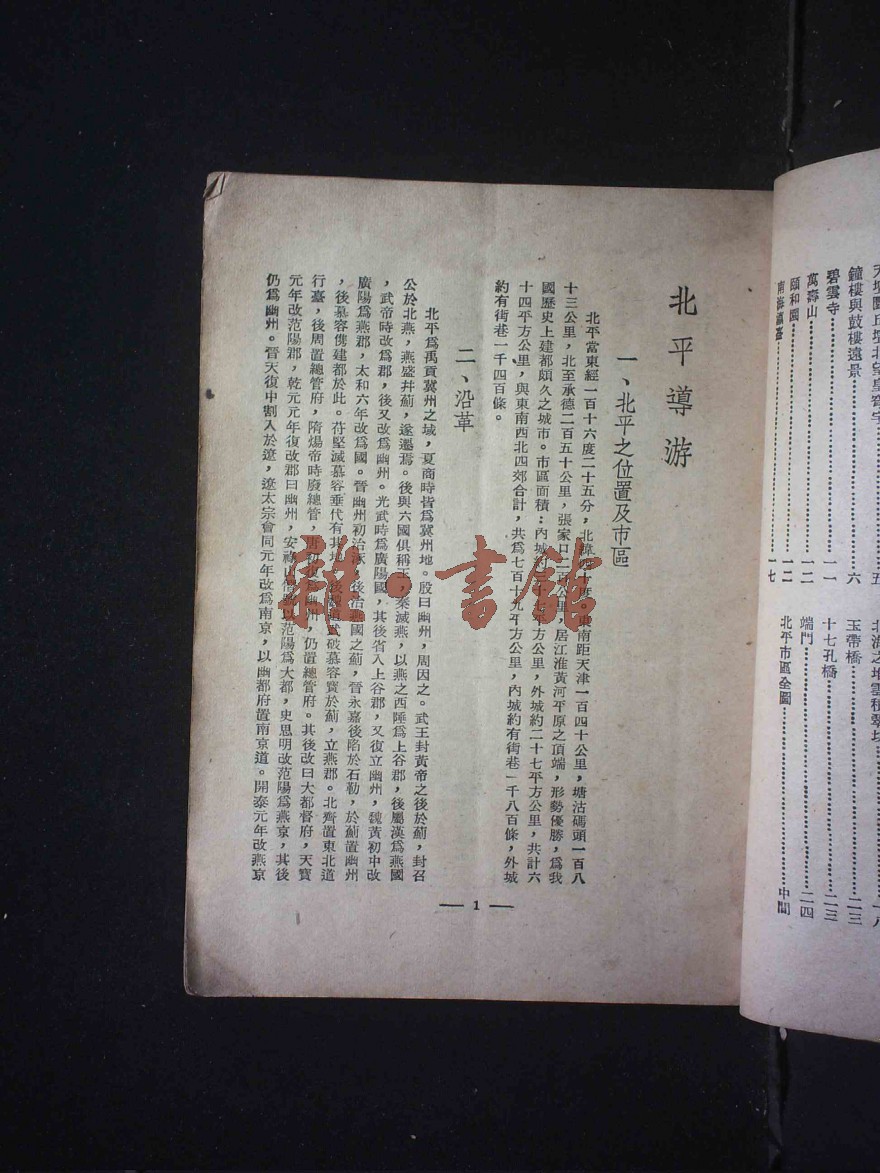 鐘樓與鼓樓遠景……六
碧雲寺……一一
萬壽山……一二
頤和園……一二
南海瀛臺……一七
玉帶橋……二三
十七孔橋……二三
端門……二四
北平市區全圖……中間
北平導游
一、北平之位置及市區
北平當東經一百十六度二十五分，北緯四十度，東南距天津一百四十公里，塘沽碼頭一百八
十三公里，北至承德二百五十公里，張家口二百公里，居江淮黃河平原之頂端，形勢優勝，爲我
國歷史上建都頗久之城市。市區面積：內城約三十七平方公里，外城約二十七平方公里，共計六
十四平方公里，與東南西北四郊合計，共爲七百十九平方公里，內城約有街巷一千八百條，外城
約有街巷一千四百條。
二、沿革
北平爲禹貢冀州之域，夏商時皆爲冀州地。殷曰幽州，周因之。武王封黃帝之後於薊，封召
公於北燕，燕盛幷薊，遂遷焉。後與六國俱稱王，秦滅燕，以燕之西陲爲上谷郡，後屬漢爲燕國
，武帝時改爲郡，後又改爲幽州。光武時爲廣陽國，其後省入上谷郡，又復立幽州，魏黃初中改
廣陽爲燕郡，太和六年改爲國。晉幽州初治涿，後治燕國之薊，晉永嘉後陷於石勒，於薊置幽州
，後慕容儁建都於此。苻堅滅慕容垂代有其地，後魏道武破慕容寶於薊，立燕郡。北齊置東北道
行臺，後周置總管府，隋煬帝時廢總管，唐初復爲幽州，仍置總管府。其後改曰大都督府，天寶
元年改范陽郡，乾元元年復改郡曰幽州，安祿山僭號以范陽爲大都，史思明改范陽爲燕京，其後
仍爲幽州。晉天復中割入於遼，遼太宗會同元年改爲南京，以幽都府置南京道。開泰元年改燕京
— 1 —
雜·書館